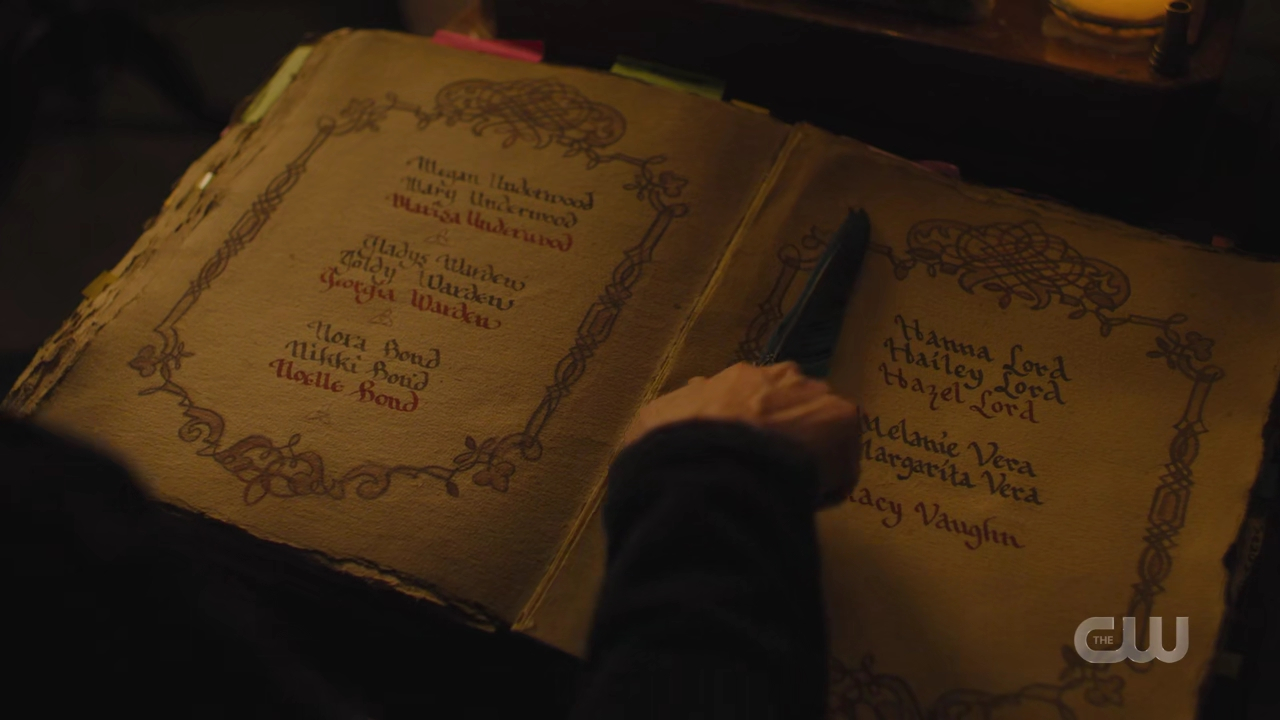 Megan Underwood
Mary Underwood
Marisa Underwood
Gladys Warden
Goldy Warden
Georgia Warden
Nora Bond
Nikki Bond
Noelle Bond
Hanna Lord
Hailey Lord
Hazel Lord
Melanie Vera
Margarita Vera
Vaughn
THE CW